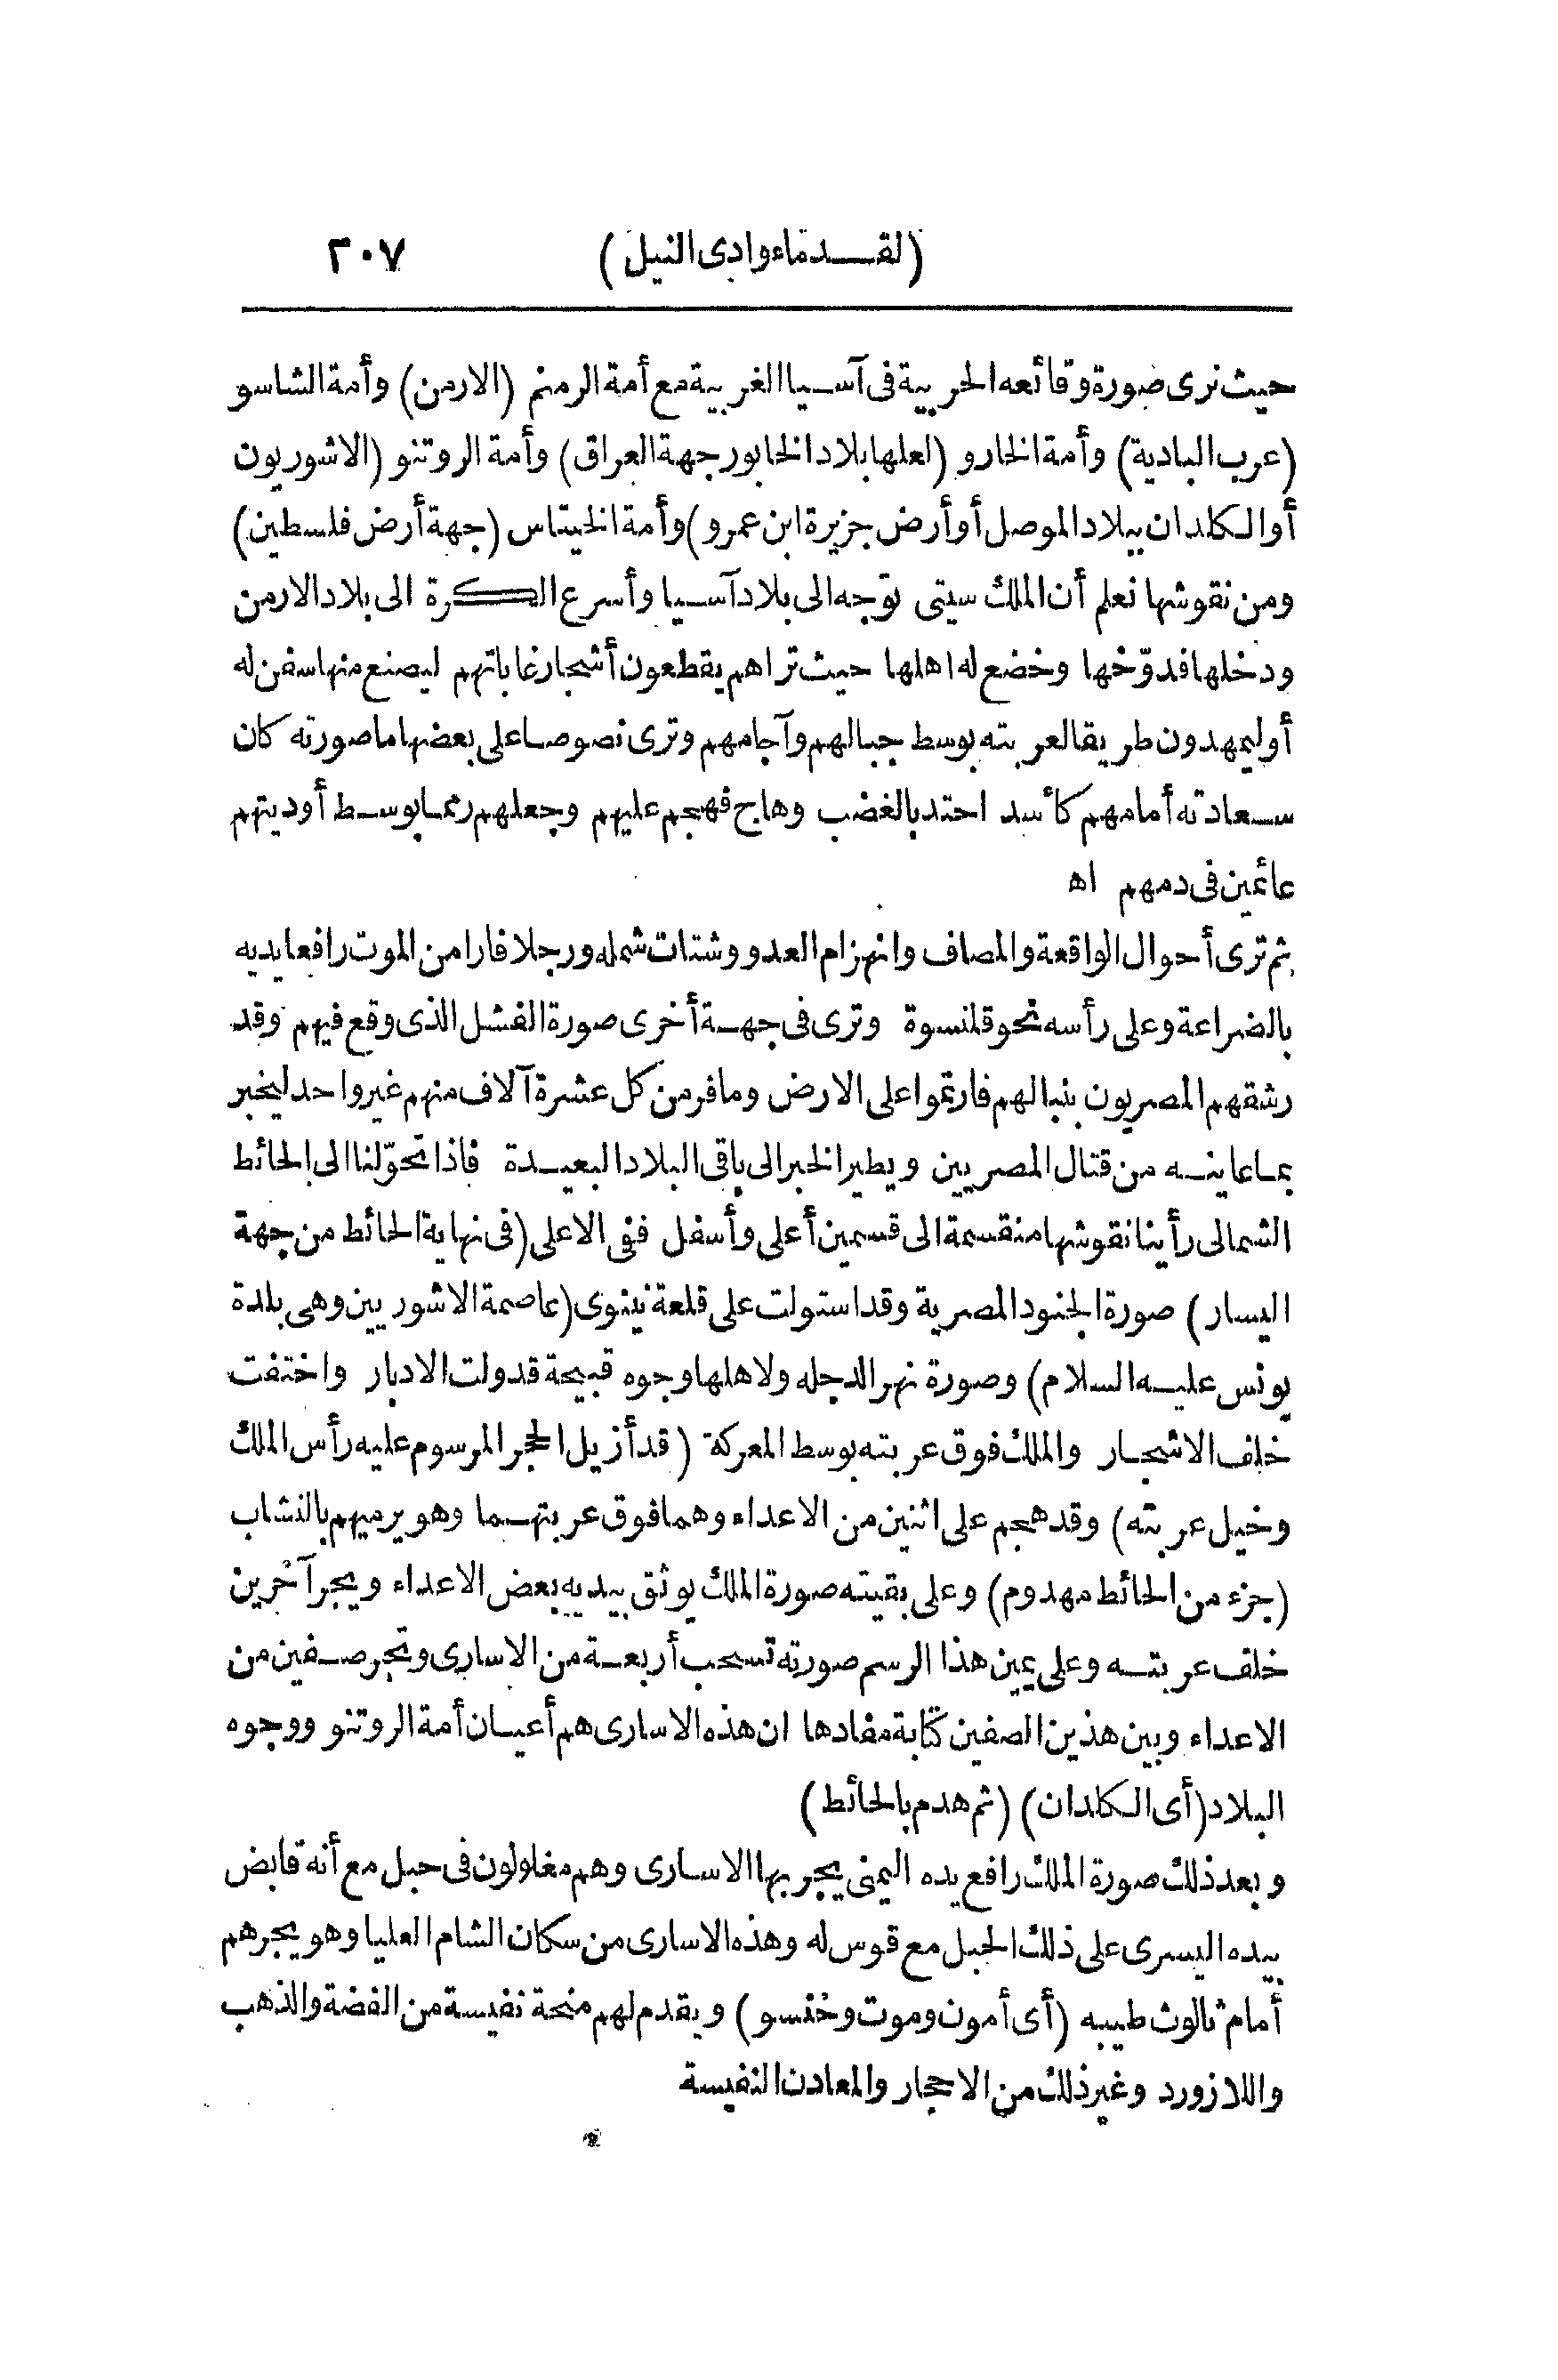 (لقدماء وادى النيل) ٢٠٧
حيث نرى صورة وقائعه الحربية فى آسيا الغربية مع أمة الرمنم (الارمن) وأمة الشاسو
(عرب البادية) وأمة الخارو (لعلها بلاد الخابور جهة العراق) وأمة الروتنو (الاشوريون
أو الكلدان ببلاد الموصل أو أرض جزيرة ابن عمرو) وأمة الخيتاس (جهة أرض فلسطين)
ومن نقوشها نعلم أن الملك سيتى توّجه الى بلاد آسيا وأسرع الكرة الى بلاد الارمن
ودخلها فدوّخها وخضع له اهلها حيث تراهم يقطعون أشجار غاباتهم ليصنع منها سفن له
أو ليمهدون طريقا لعربته بوسط جبالهم وآجامهم وترى نصوصا على بعضها ما صورته كان
سعادته أمامهم كأسد احتد بالغضب وهاج فهجم عليهم وجعلهم رمما بوسط أوديتهم
عائمين فى دمهم اه
ثم ترى أحوال الواقعة والمصاف وانهزام العدو وشتات شمله ورجلا فارا من الموت رافعا يديه
بالضراعة وعلى رأسه نحو قلنسوة وترى فى جهة أخرى صورة الفشل الذى وقع فيهم وقد
رشقهم المصريون بنبالهم فارتموا على الارض وما فر من كل عشرة آلاف منهم غير واحد ليخبر
بما عاينه من قتال المصريين ويطير الخبر الى باقى البلاد البعيدة فاذا تحوّلنا الى الحائط
الشمالى رأينا نقوشها منقسمة الى قسمين أعلى وأسفل ففى الاعلى (فى نهاية الحائط من جهة
اليسار) صورة الجنود المصرية وقد استولت على قلعة نينوى (عاصمة الاشوريين وهى بلدة
يونس عليه السلام) وصورة نهر الدجله ولاهلها وجوه قبيحة قد ولت الادبار واختفت
خلف الاشجار والملك فوق عربته بوسط المعركة (قد أزيل الحجر المرسوم عليه رأس الملك
وخيل عربته) وقد هجم على اثنين من الاعداء وهما فوق عربتهما وهو يرميهم بالنشاب
(جزء من الحائط مهدوم) وعلى بقيته صورة الملك يوثق بيديه بعض الاعداء ويجر آخرين
خلف عربته وعلى يمين هذا الرسم صورته تسحب أربعة من الاسارى وتجر صفين من
الاعداء وبين هذين الصفين كتابة مفادها ان هذه الاسارى هم أعيان أمة الروتنو ووجوه
البلاد (أى الكلدان) (ثم هدم بالحائط)
وبعد ذلك صورة الملك رافع يده اليمنى يجر بها الاسارى وهم مغلولون فى حبل مع أنه قابض
بيده اليسرى على ذلك الحبل مع قوس له وهذه الاسارى من سكان الشام العليا وهو يجرهم
أمام ثالوث طيبه (أى أمون وموت وخنسو) ويقدم لهم منحة نفيسة من الفضة والذهب
واللازورد وغير ذلك من الاحجار والمعادن النفيسة